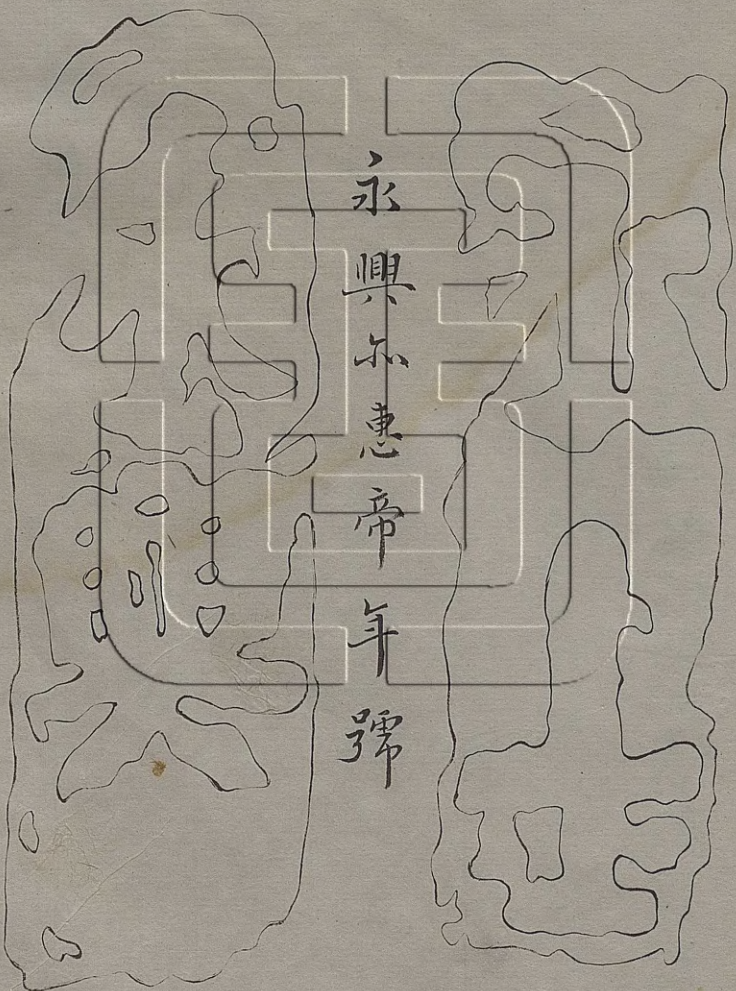 永興亦惠帝年號